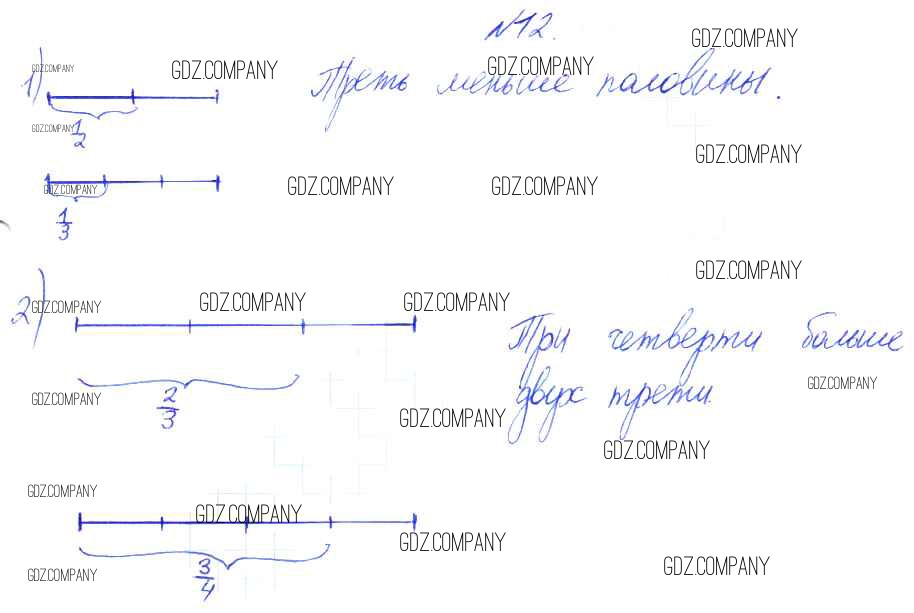 №12.
GDZ.COMPANY
1) GDZ.COMPANY GDZ.COMPANY Треть меньше половины. GDZ.COMPANY
GDZ.COMPANY 1/2
GDZ.COMPANY
GDZ.COMPANY GDZ.COMPANY GDZ.COMPANY
1/3
GDZ.COMPANY
2) GDZ.COMPANY GDZ.COMPANY GDZ.COMPANY
Три четверти больше
GDZ.COMPANY
двух трети.
GDZ.COMPANY 2/3 GDZ.COMPANY
GDZ.COMPANY
GDZ.COMPANY
GDZ.COMPANY
GDZ.COMPANY
GDZ.COMPANY 3/4 GDZ.COMPANY